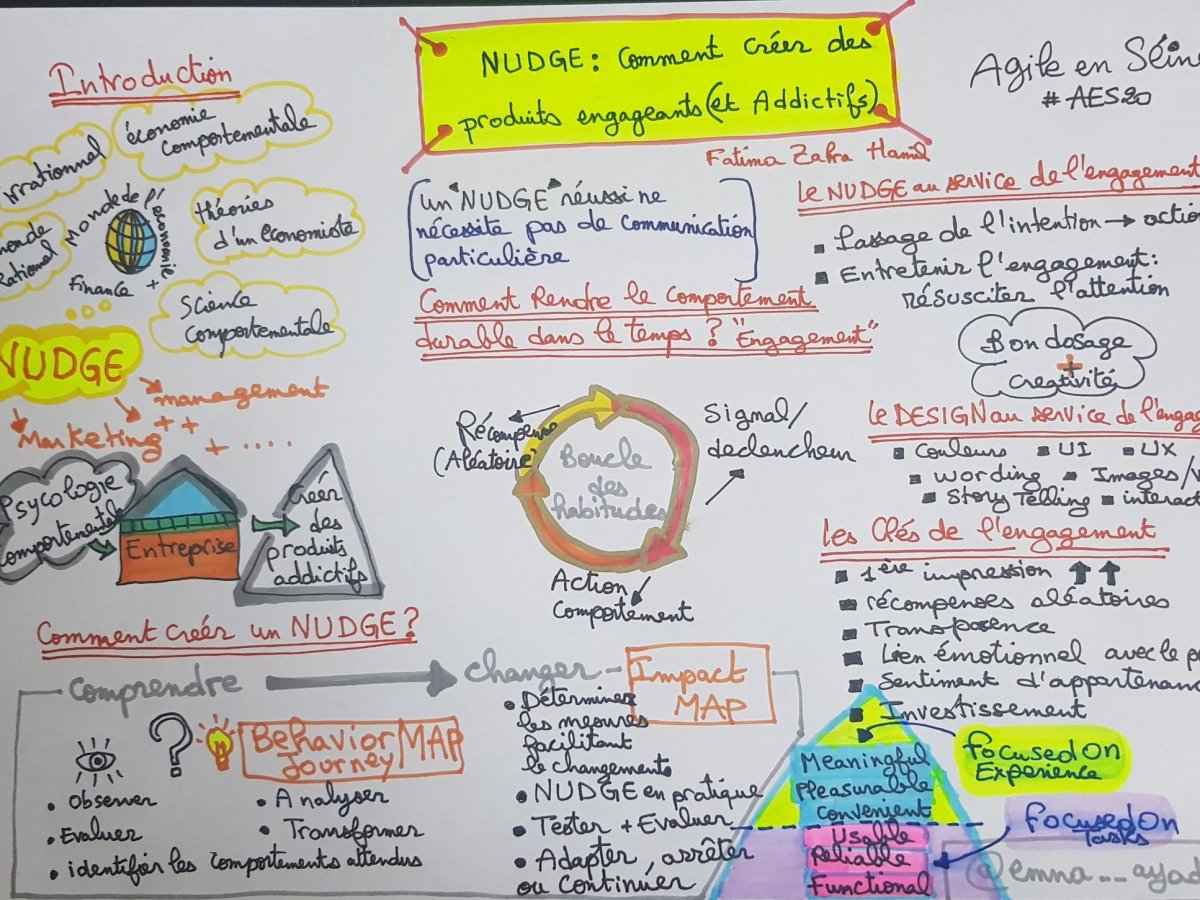 NUDGE : Comment créer des
produits engageants (et Addictifs)
Agile en Sein
# AES20
Fatima Zahra Hamil
Introduction
irrationnel
économie
comportementale
Monde de l'économie +
Finance +
théories
d'un économiste
onde
Rationnel
Science
comportementale
NUDGE
management
Marketing ++
+ ....
Psycologie
comportementale
Entreprise
Créer
des
produits
addictifs
un "NUDGE" réussi ne
nécessite pas de communication
particulière
Comment Rendre le comportement
durable dans le temps ? "Engagement"
Récompense
(Aléatoire)
Signal/
declencheur
Boucle
des
habitudes
Action
Comportement
le NUDGE au service de l'engagement
Passage de l'intention → action
Entretenir l'engagement :
résusciter l'attention
Bon dosage
+
créativité
le DESIGN au service de l'engag
Couleurs
UI
UX
wording
Images/v
Story Telling
interact
les Clés de l'engagement
1ère impression
récompenses aléatoires
Transparence
Lien émotionnel avec le p
Sentiment d'appartenan
Investissement
Comment créer un NUDGE ?
comprendre
changer
Impact
MAP
?
Behavior
Journey
MAP
• observer
• Evaluer
• identifier les comportements attendus
• Analyser
• Transformer
• Déterminer
les mesures
facilitant
le changements
• NUDGE en pratique
• Tester + Evaluer
• Adapter, arrêter
ou continuer
Meaningful
Pleasurable
convenient
Usable
Reliable
Functional
focused On
Experience
focused On
Tasks
@emna__ayad